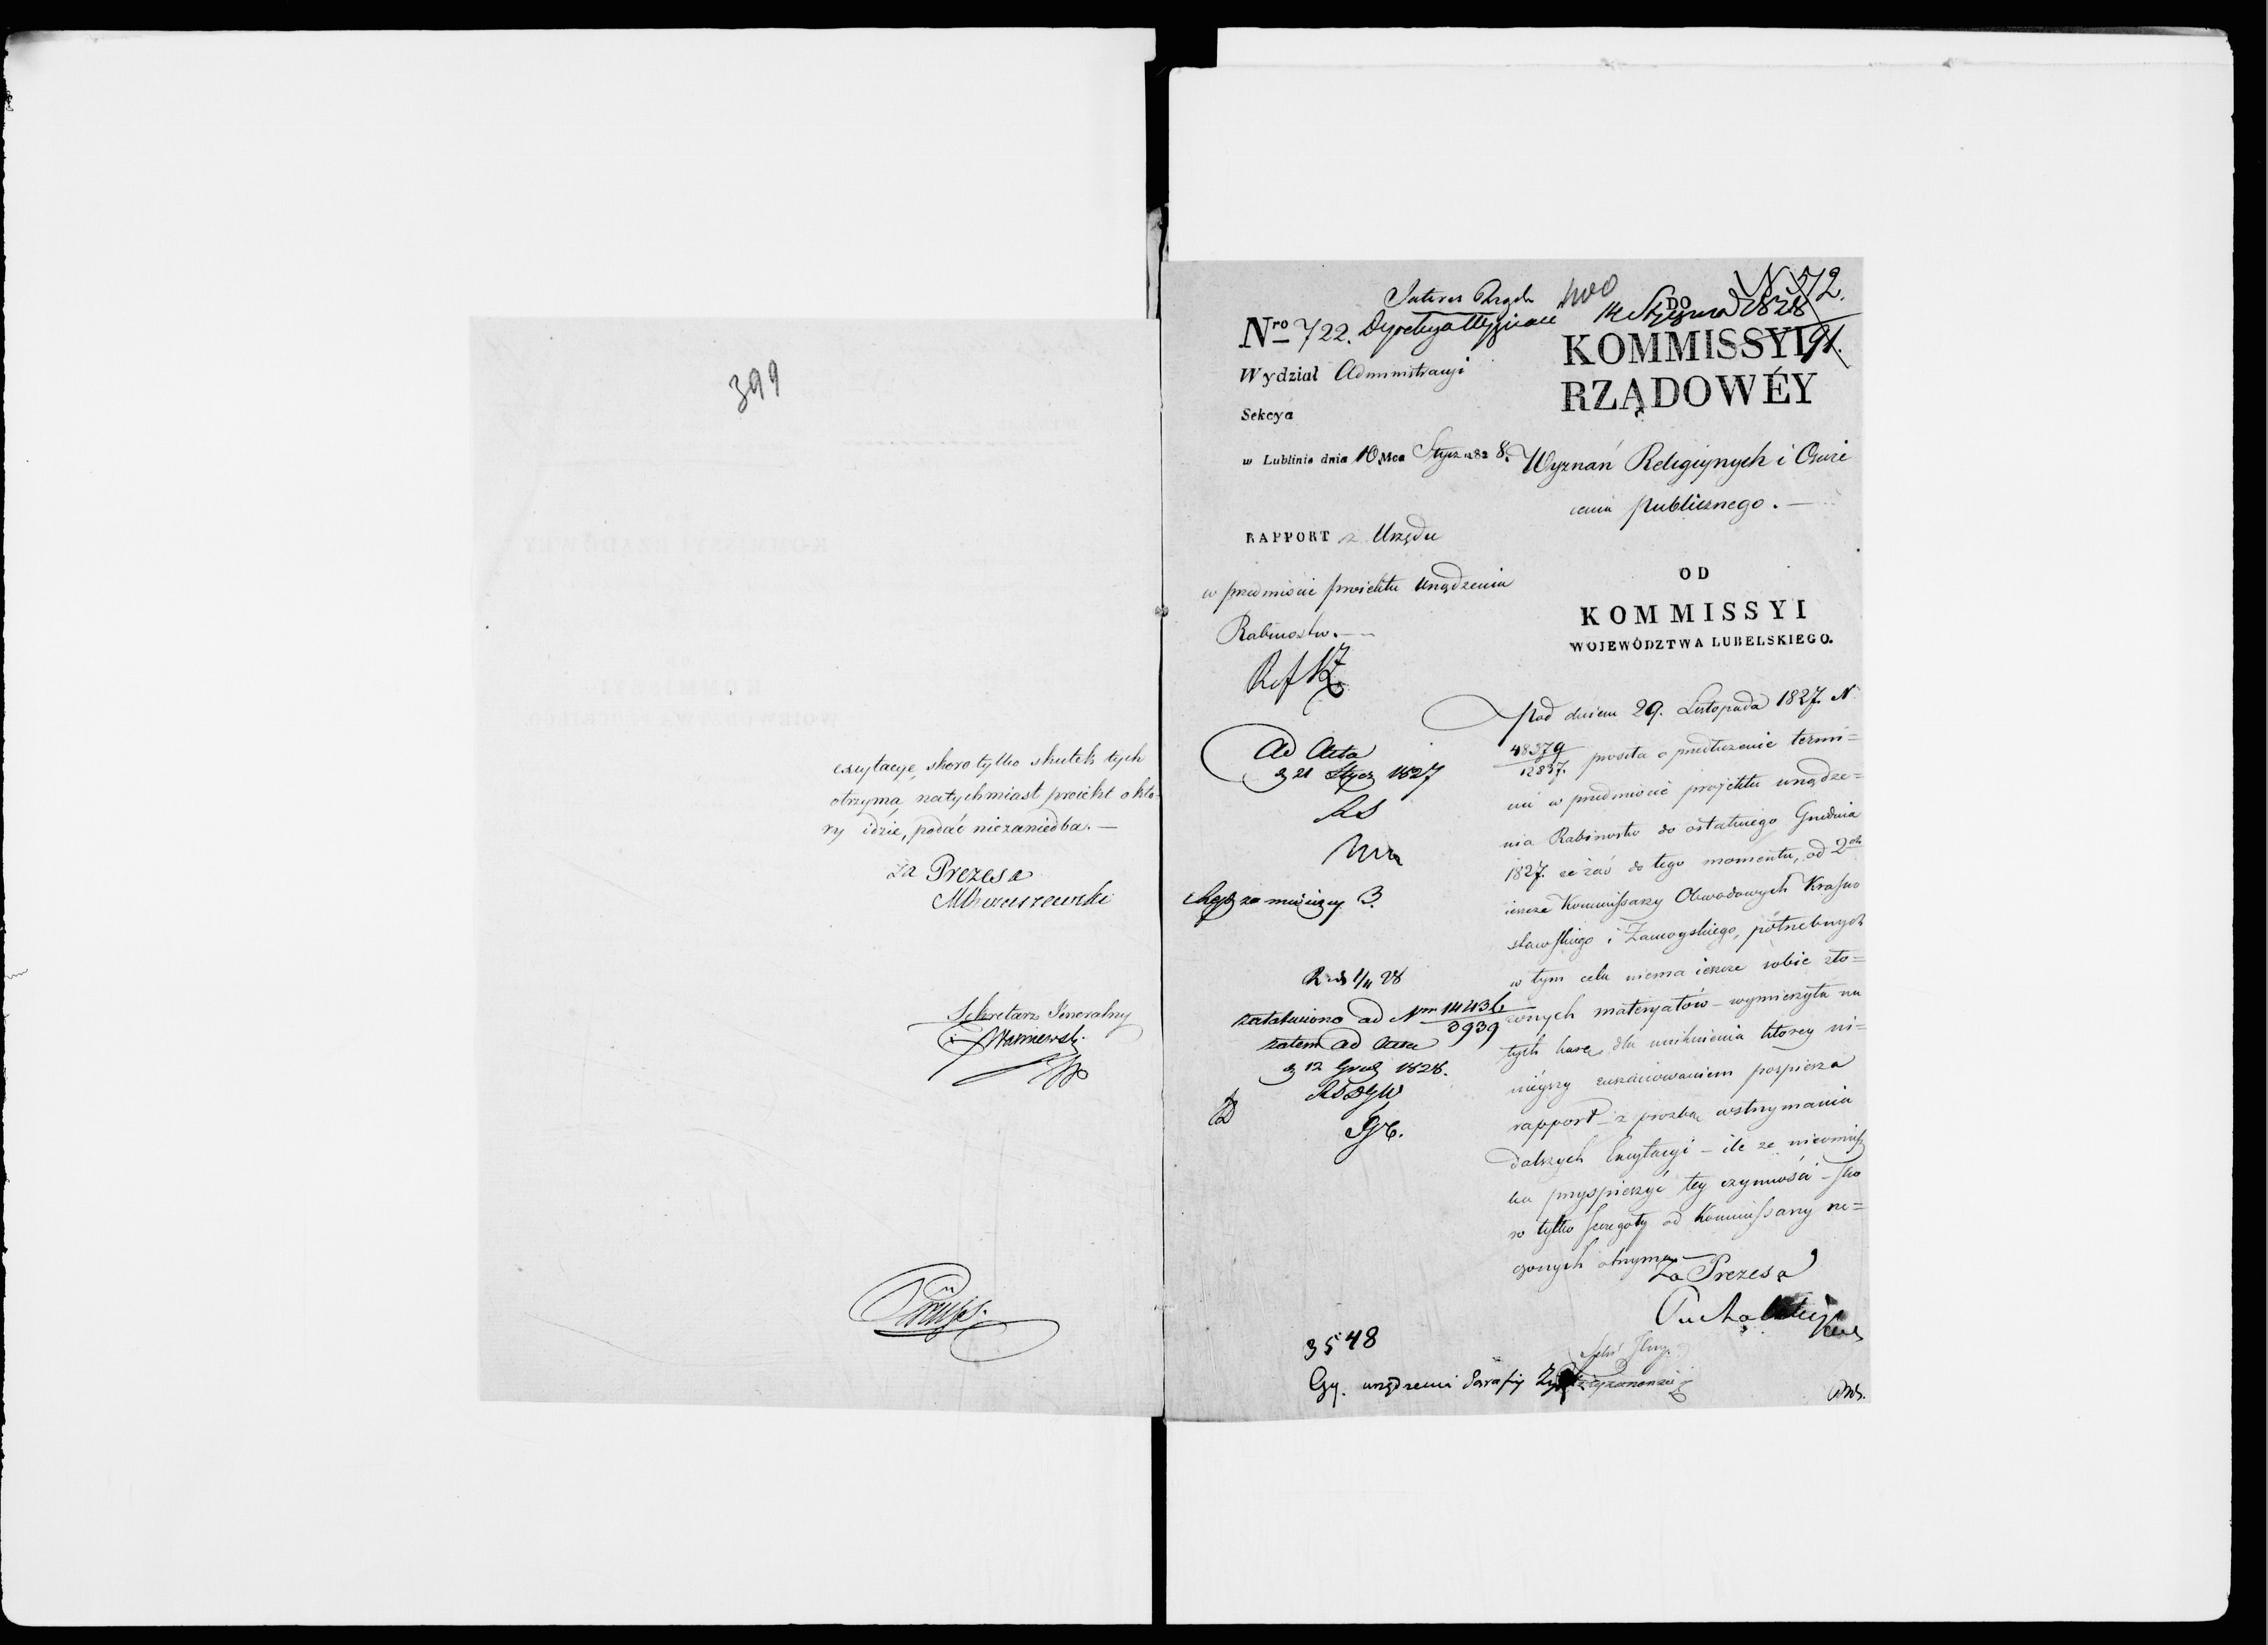 399
excytacye, skoro tylko skutek tych
otrzyma natychmiast proiekt o któ-
ry idzie, podać niezaniedba. —
Za Prezesa
Sekretarz Jeneralny
400
N 572.
14 Stycznia 1828
91.
Nro 722.
Wydział Administracyi
Sekcya
w Lublinie dnia 10 Mca Stycz 1828.
RAPPORT z Urzędu
w przedmiocie proiektu urządzenia
Rabinostw. —
DO
KOMMISSYI
RZĄDOWÉY
Wyznań Religiynych i Oświe
cenia publicznego. —
OD
KOMMISSYI
WOJEWÓDZTWA LUBELSKIEGO.
Ad Acta
d 21 Stycz 1827
Pod dniem 29. Listopada 1827. N
48379
12837. prosiła o przedłużenie termi=
nu w przedmiocie projektu urządze=
nia Rabinostw do ostatniego Grudnia
1827. że zaś do tego momentu, od 2ch
ieszcze Kommissarzy Obwodowych Krasno
stawskiego i Zamoyskiego, potrzebnych
w tym celu niema ieszcze sobie zło=
żonych materyałów – wymierzyła na
tych karę dla uniknienia ktorey ni=
nieyszy uszanowaniem pospiesza
rapport – z prozbą wstrzymania
dalszych Excytacyi – ile że nieomiesz
ka przyspieszyć tey czynności – sko
ro tylko szczegóły od Kommissarzy rze=
czonych otrzyma. —
Za Prezesa
załatwiono ad Nrm 14436
3939
zatem ad acta
d 12 Grud 1828.
3548
urządzenia Parafiy